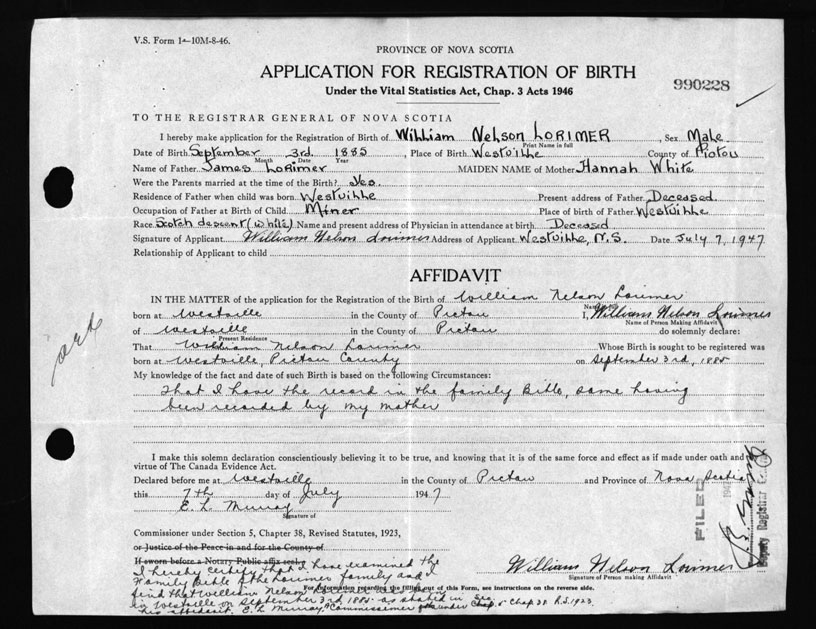 V.S. Form 1a—10M-8-46.
PROVINCE OF NOVA SCOTIA
APPLICATION FOR REGISTRATION OF BIRTH
Under the Vital Statistics Act, Chap. 3 Acts 1946
990228
TO THE REGISTRAR GENERAL OF NOVA SCOTIA
I hereby make application for the Registration of Birth of William Nelson LORIMER, Sex Male
Print Name in full
Date of Birth September 3rd. 1885, Place of Birth Westville County of Pictou
Month Date Year
Name of Father James Lorimer MAIDEN NAME of Mother Hannah White
Were the Parents married at the time of the Birth? Yes.
Residence of Father when child was born Westville Present address of Father Deceased.
Occupation of Father at Birth of Child Miner Place of birth of Father Westville
Race Scotch descent (white) Name and present address of Physician in attendance at birth Deceased
Signature of Applicant William Nelson Lorimer Address of Applicant Westville, N.S. Date July 7, 1947
Relationship of Applicant to child
AFFIDAVIT
IN THE MATTER of the application for the Registration of the Birth of William Nelson Lorimer
born at Westville in the County of Pictou I, William Nelson Lorimer
Name of Person Making Affidavit
of Westville in the County of Pictou do solemnly declare:
Present Residence
That William Nelson Lorimer Whose Birth is sought to be registered was
born at Westville, Pictou County on September 3rd, 1885
My knowledge of the fact and date of such Birth is based on the following Circumstances:
That I have the record in the family Bible, same having
been recorded by my mother
I make this solemn declaration conscientiously believing it to be true, and knowing that it is of the same force and effect as if made under oath and by
virtue of The Canada Evidence Act.
Declared before me at Westville in the County of Pictou and Province of Nova Scotia
this 7th day of July 1947
E. L. Murray
Signature of
Commissioner under Section 5, Chapter 38, Revised Statutes, 1923,
or Justice of the Peace in and for the County of
If sworn before a Notary Public affix seal
I hereby certify that I have examined the
Family Bible of the Lorimer family and I
find that William Nelson Lorimer was born
in Westville on September 3rd 1885 as stated in
his affidavit. E. L. Murray, Commissioner under Sec. 5 Chap 38 R.S. 1923.
William Nelson Lorimer
Signature of Person making Affidavit
For information regarding the filling out of this Form, see instructions on the reverse side.
FILED
Deputy Registrar General